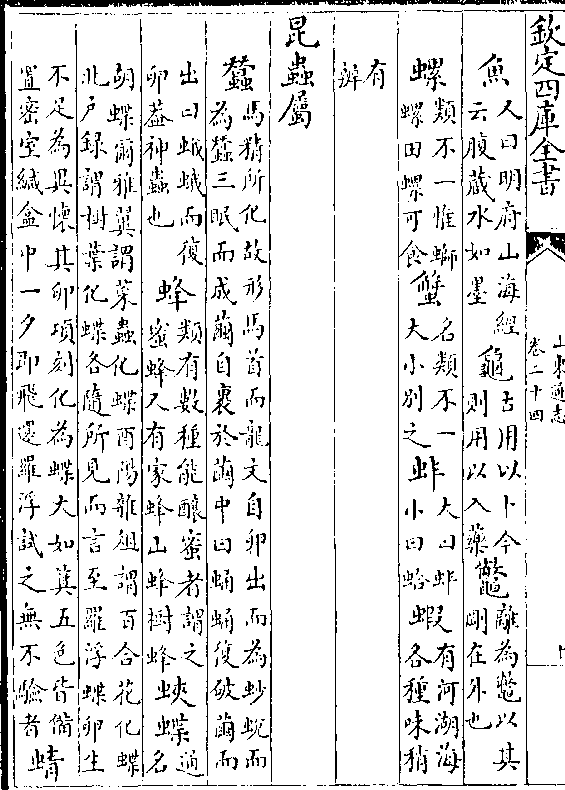 欽定四庫全書
山東通志
卷二十四
十
魚又曰明府山海經
云腹蔵水如墨
龜古用以卜今
則用以入藥
鼈離為鼈以其
剛在外也
螺類不一惟螄
螺田螺可食
蟹名類不一
大小別之
蚌大曰蚌
小曰蛤
蝦有河湖海
各種味稍
有
辨
昆蟲屬
蠶馬精所化故形馬首而龍文自卵出而為䖢蛻而
為蠶三眠而成繭自裹於繭中曰蛹蛹復破繭而
出曰蛾蛾而復
卵葢神蟲也
蜂類有數種能釀蜜者謂之
蜜蜂又有家蜂山蜂樹蜂
蛺蝶通
名
胡蝶爾雅翼謂菜蟲化蝶酉陽雜俎謂百合花化蝶
北户録謂樹葉化蝶各隨所見而言至羅浮蝶卵生
不足為異懷其卵頃刻化為蝶大如箕五色皆備
置密室緘盒中一夕即飛還羅浮試之無不驗者
蜻